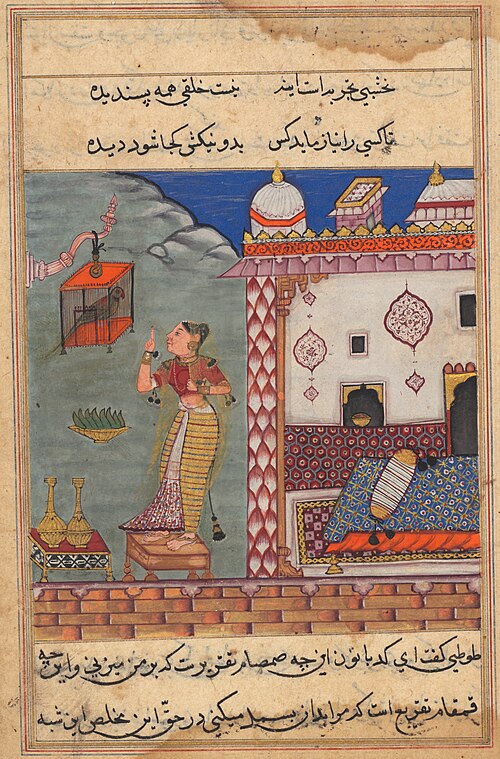 نخشبی تجربه است نیست خلقی همه پسندیده
تا کسی را نیازماید کس بد و نیکش کجا شود دیده
طوطی گفت ای کدبانو این چه صمصام است که بر من میزنی و این چه
قمقام تقریع است که مرا بدان میکنی در حق این مخلص این شبه